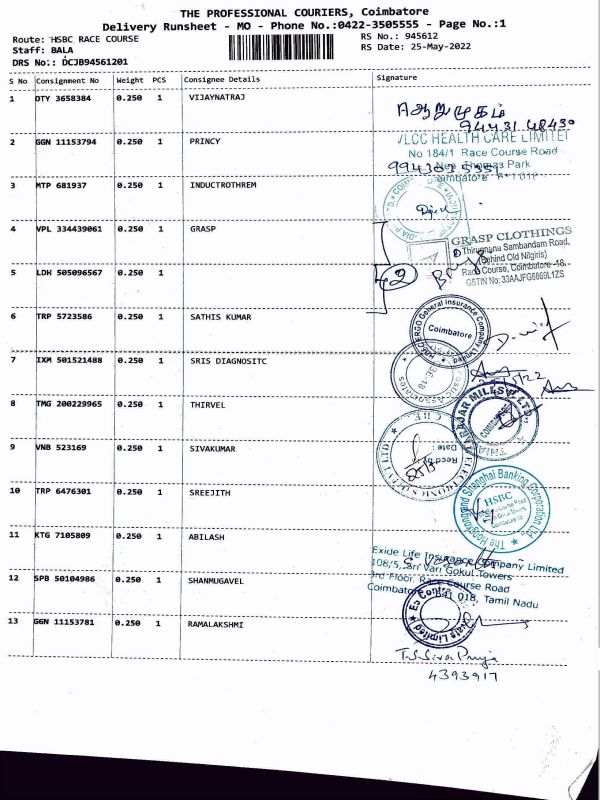 THE PROFESSIONAL COURIERS, Coimbatore
Delivery Runsheet - MO - Phone No.:0422-3505555 - Page No.:1
Route: HSBC RACE COURSE
RS No.: 945612
Staff: BALA
RS Date: 25-May-2022
DRS No.: DCJB94561201
S No Consignment No Weight PCS Consignee Details Signature
1 DTY 3658384 0.250 1 VIJAYNATRAJ
ஆறுமுகம்
94431 48430
2 GGN 11153794 0.250 1 PRINCY
VLCC HEALTH CARE LIMITED
No 184/1 Race Course Road
Park
3 MTP 681937 0.250 1 INDUCTROTHREM
4 VPL 334439061 0.250 1 GRASP
GRASP CLOTHINGS
Thirugnana Sambandam Road,
(Behind Old Nilgiris)
Race Course, Coimbatore -18.
GSTIN No: 33AAJFG6869L1ZS
5 LDH 505096567 0.250 1
2
6 TRP 5723586 0.250 1 SATHIS KUMAR
General Insurance Company
Coimbatore
7 IXM 501521488 0.250 1 SRIS DIAGNOSITC
Associates
8 TMG 200229965 0.250 1 THIRVEL
MILLS
9 VNB 523169 0.250 1 SIVAKUMAR
Recd by
Date :
10 TRP 6476301 0.250 1 SREEJITH
The Hongkong and Shanghai Banking Corporation Ltd
HSBC
11 KTG 7105809 0.250 1 ABILASH
Exide Life Insurance Company Limited
108/5, Sri Vari Gokul Towers
3rd Floor, Race Course Road
Coimbatore 641 018, Tamil Nadu
12 SPB 50104986 0.250 1 SHANMUGAVEL
13 GGN 11153781 0.250 1 RAMALAKSHMI
4393917